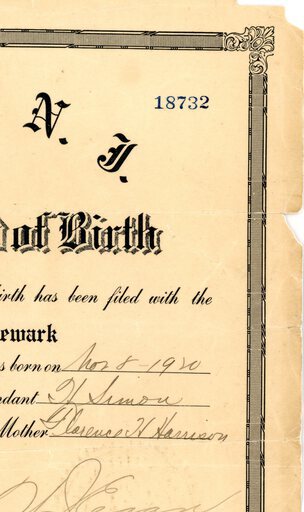 18732
N. J.
d of Birth
irth has been filed with the
ewark
s born on Nov 8-1920
ndant H Simon
Mother Florence H Harrison